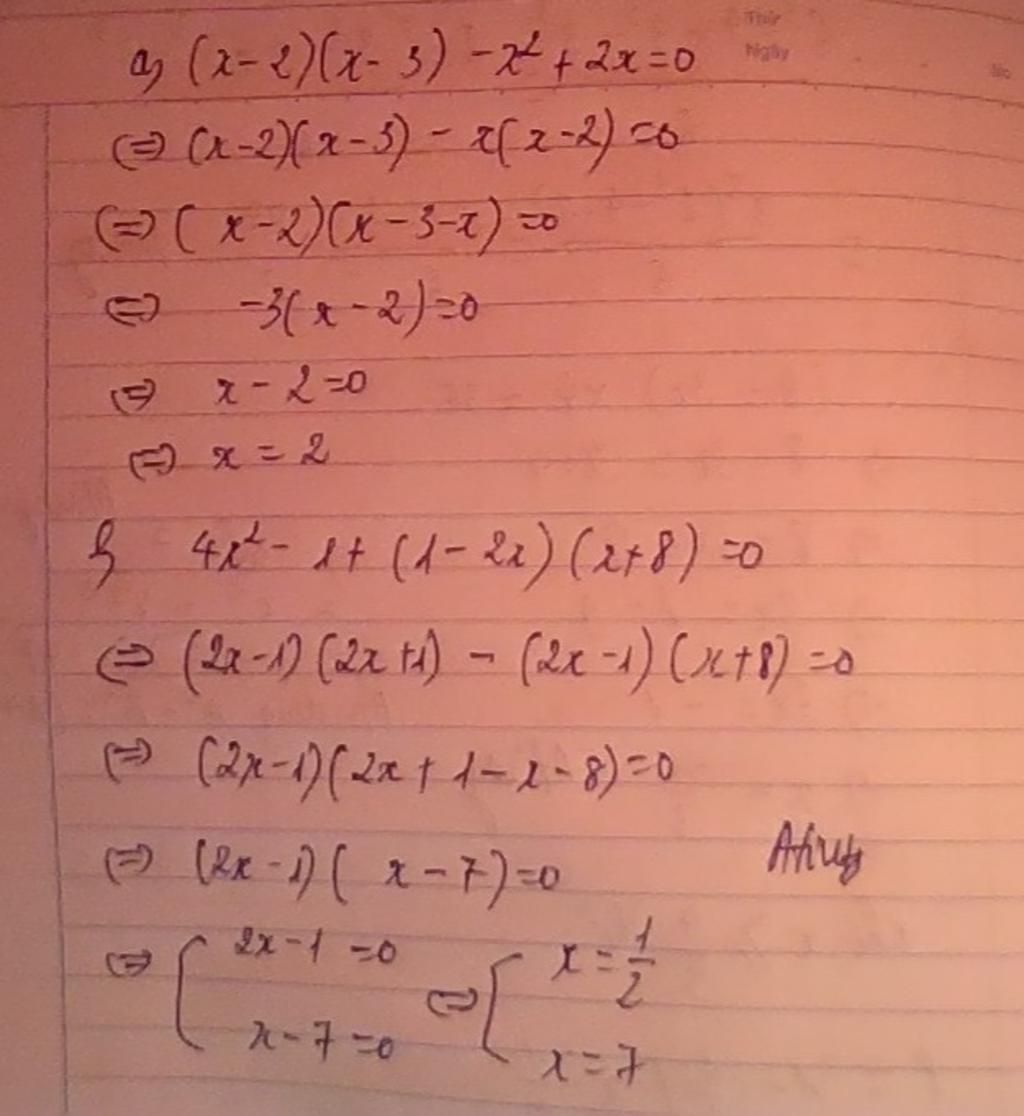 Thứ
Ngày
No
a, (x-2)(x-3) -x²+2x=0
⇔ (x-2)(x-3) - x(x-2)=0
⇔ (x-2)(x-3-x)=0
⇔ -3(x-2)=0
⇔ x-2=0
⇔ x=2
b, 4x²-1+(1-2x)(x+8)=0
⇔ (2x-1)(2x+1) - (2x-1)(x+8)=0
⇔ (2x-1)(2x+1-x-8)=0
⇔ (2x-1)(x-7)=0
⇔ [ 2x-1=0 ⇔ [ x=1/2
x-7=0 x=7